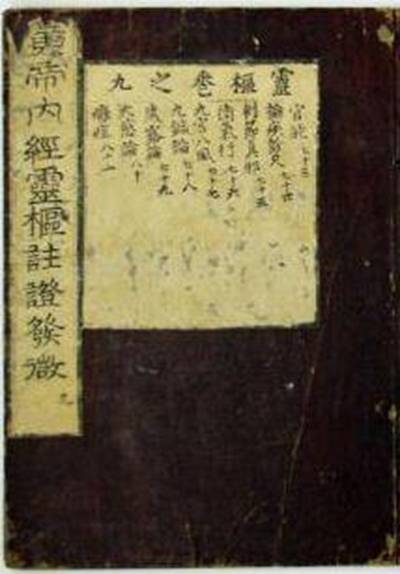 黃帝內經靈樞註證發微 九
靈樞卷之九
官能 七十三
論疾診尺 七十四
刺節真邪 七十五
衛氣行 七十六
九宮八風 七十七
九鍼論 七十八
歲露論 七十九
大惑論 八十
癰疽 八十一